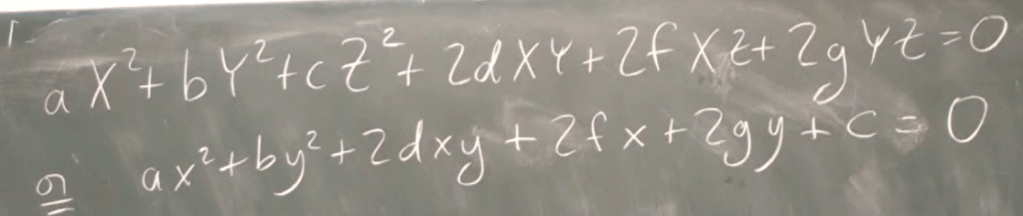 aX²+bY²+cZ²+2dXY+2fXZ+2gYZ=0
ax²+by²+2dxy+2fx+2gy+c=0